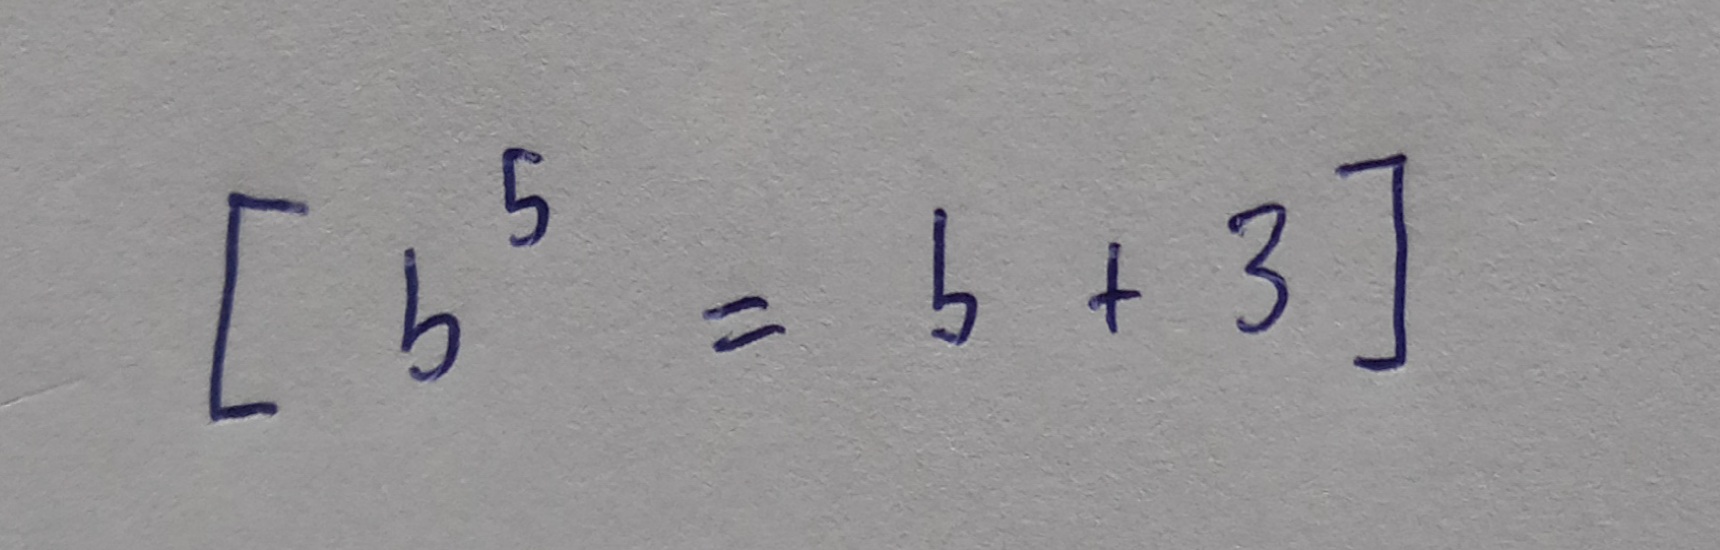 [ b⁵ = b + 3 ]